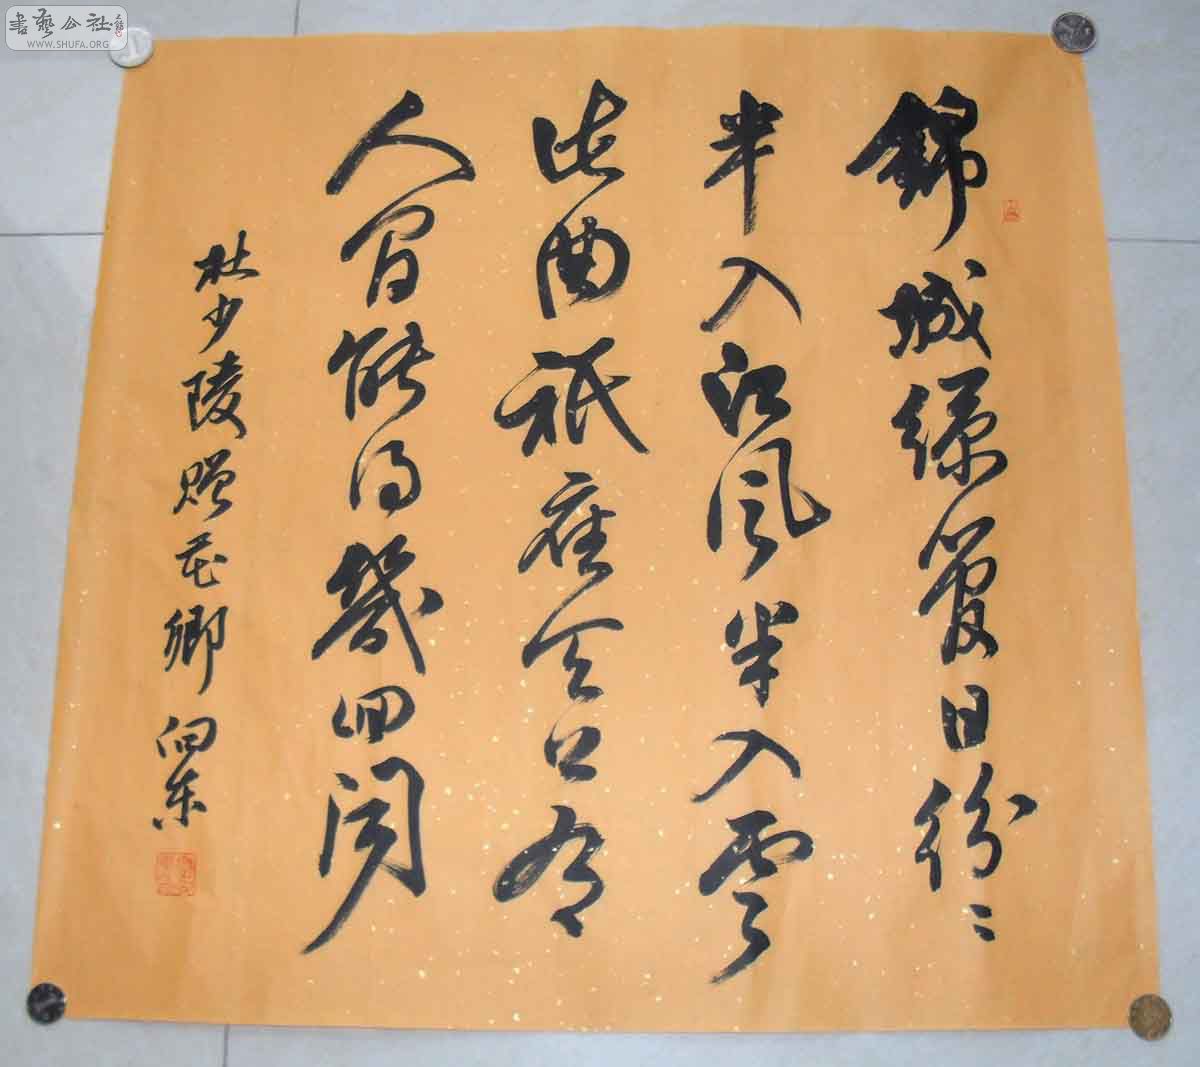 書藝公社
WWW.SHUFA.ORG
錦城絲管日紛〻
半入江風半入雲
此曲祇應天上有
人間能得幾回聞
杜少陵贈花卿 向東